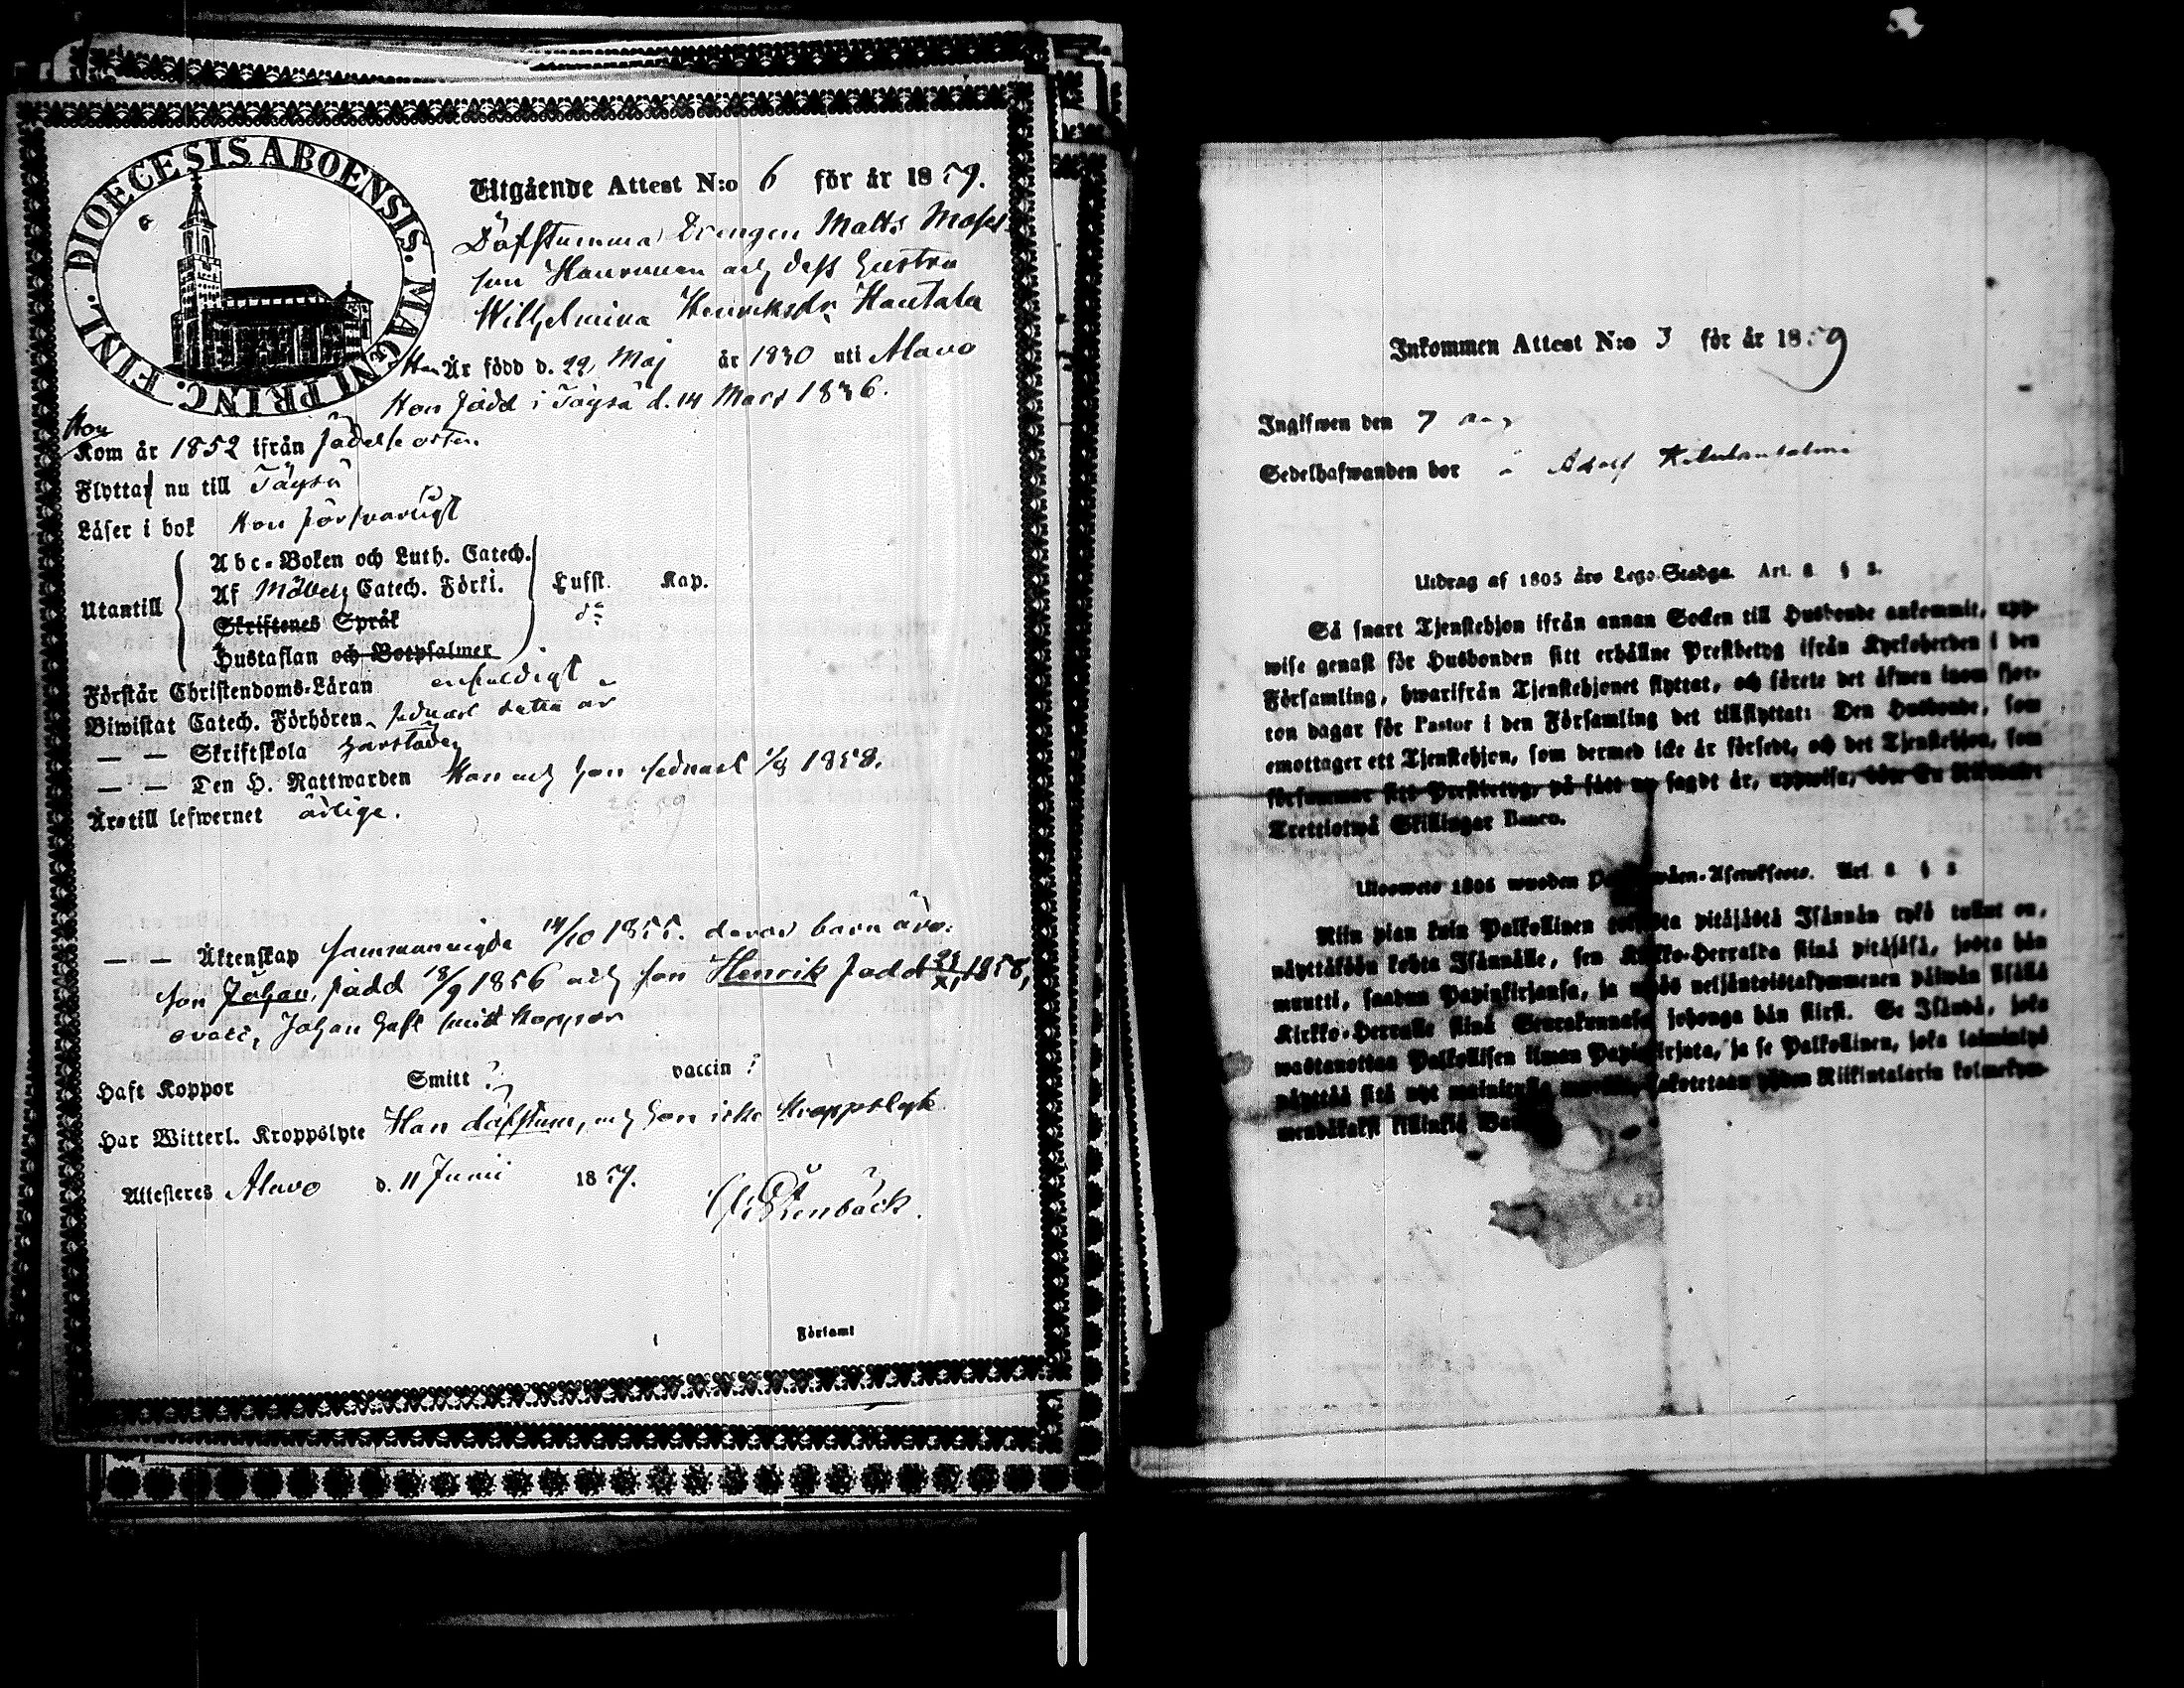 DIOECESIS ABOENSIS. MAGNI PRINC. FINL.
Utgående Attest N:o 6 för år 1859.
Döfstumma Drengen Matts Moses
son och dess hustru
Wilhelmina Henriksdr Hautala
Han Är född d. 22 Maj år 1830 uti Alavo
Hon född i Töysä d. 14 Mars 1836.
Hon
Kom år 1852 ifrån födelseorten
Flytta nu till Töysä
Läser i bok Hon försvarligt
Utantill
Abc-Boken och Luth. Catech.
Af Möbergs Catech. Förkl.
Skriftenes Språk
Hustaflan och Botpsalmer
Lufft. Kap.
Förstår Christendoms-Läran enfaldigt
Biwistat Catech. Förhören
— — Skriftskola
— — Den H. Nattwarden Han och hon sednast 1858.
Äro till lefwernet ärlige.
— — Äktenskap sammanvigde 14/10 1855. deras barn äro:
son Johan, född 18/9 1856 och son Henrik född 1858,
ovacc, Johan haft smittkoppor
Haft Koppor Smitt ? vaccin ?
Har Witterl. Kroppslyte Han döfstum, och hon icke Kroppslyte
Attesteras Alavo d. 11 Junii 1859.
Förkamt
Inkommen Attest N:o 3 för år 1859
Ingifwen den 7
Sedelhafwanden bor Adolf
Utdrag af 1805 års Lego-Stadga. Art. 8 § 2.
Så snart Tjenstehjon ifrån annan Socken till Husbonde ankommit, upp-
wise genast för Husbonden sitt erhållne Prestbetyg ifrån Kyrkoherden i den
Församling, hwarifrån Tjenstehjonet flyttat, och förete det äfwen inom fjor-
ton dagar för Pastor i den Församling det tillflyttat: Den Husbonde, som
emottager ett Tjenstehjon, som dermed icke är försedt, och det Tjenstehjon, som
försummar sitt Prestbetyg, på sätt nu sagdt är, uppwisa, böte En Riksdaler
Trettiotwå Skillingar Banco.
Ulosweto 1805 wuoden Art. 8 §
Niin pian kuin Palkollinen pitäjästä Isännän tykö tullut on,
näyttäköön kohta Isännälle, sen Kirkko-Herralta siinä pitäjäsä, josta hän
muutti, saadun Papinkirjansa, ja myös neljäntoistakymmenen päiwän sisällä
Kirkko-Herralle siinä Seurakunnasa johonga hän siirsi. Se Isändä, joka
wastanottaa Palkollisen ilman Papinkirjata, ja se Palkollinen, joka laiminlyö
näyttää sitä nyt yhden Riikintalarin kolmekym-
mendäkaksi killinkiä